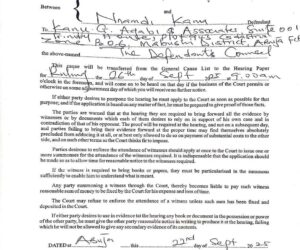 Between
And
Nnamdi Kanu
Defendant
To Kanu G. Agabi & Associates Suite 001
The Defendants Counsel
This cause will be transferred from the General Cause List to the Hearing Paper
for 26th Sept 25 9.00am
o'clock in the forenoon, and will come on to be heard on that day if the business of the Court permits or
otherwise on some adjournment day of which you will receive no further notice.
If either party desires to postpone the hearing he must apply to the Court as soon as possible for that
purpose; and if the application is based on any matter of fact, he must be prepared to give proof of those facts.
The parties are warned that at the hearing they are required to bring forward all the evidence by
witnesses or by documents which each of them desires to rely on in support of his own case and in
contradiction of that of his opponent. The proof will be required at the hearing, and not on a subsequent day
and parties failing to bring their evidence forward at the proper time may find themselves absolutely
precluded from adducing it at all, or at best only allowed to do so on payment of substantial costs to the other
side, and on such other terms as the Court thinks fit to impose.
Parties desirous to enforce the attendance of witnesses should apply at once to the Court to issue one or
more summonses for the attendance of the witnesses required. It is indispensable that the application should
be made so as to allow time for reasonable notice to the witnesses required.
If the witness is required to bring books or papers, they must be particularised in the summons
sufficiently to enable him to understand what is meant.
Any party summoning a witness through the Court, thereby becomes liable to pay such witness
reasonable sum of money to be fixed by the Court for his expense and loss of time.
The Court may refuse to enforce the attendance of a witness unless such sum has been fixed and
deposited in the Court.
If either party desires to use in evidence at the hearing any book or document in the possession or power
of the other party, he must give the other party reasonable notice in writing to produce it at the hearing, failing
which he will not be allowed to give any secondary evidence of its contents.
DATED at Abuja this 22nd Sept 2025